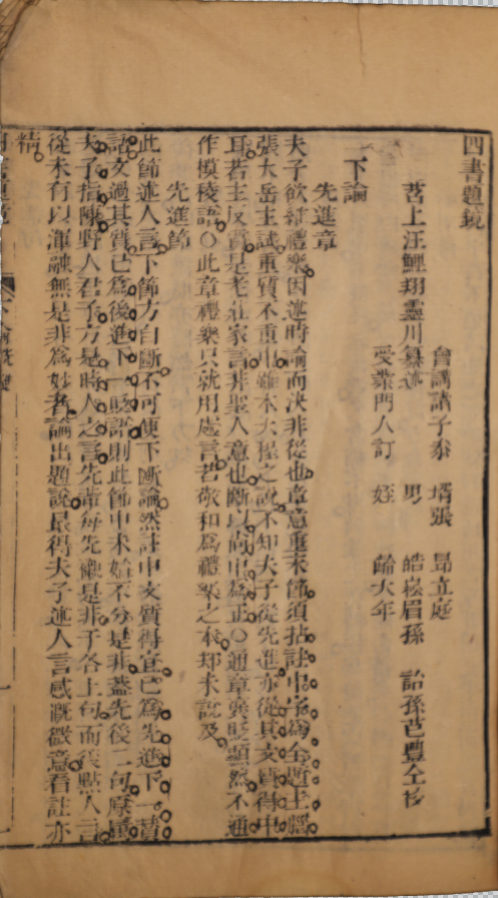 四書題鏡
苕上汪鯉翔靈川纂述
受業門人訂
男
姪
皓崧眉孫
大年
下論
先進章
夫子欲辨禮樂因述時論而決非從也章意重末節須拈註中字為全題主腦
張大岳主試重質不重中雖本大程之說不知夫子從先進亦從其文質得中
耳若主反質是老莊家言非聖人意也斷以尚中為正○通章褒貶顯然不通
作模稜語○此章禮樂只就用處言若敬和為禮樂之本却未說及
先進節
此節述人言下節方自斷不可便下斷論然註中文質得宜已為先進下一
語文過其質已為後進下一貶語則此節中未始不分是非蓋先後二句原屬
夫子指陳野人君子方是時人之言先輩每先獻是非于各上句而後點人言
從未有以渾融無是非為妙者論出題說最得夫子述人言感慨微意看註亦
精